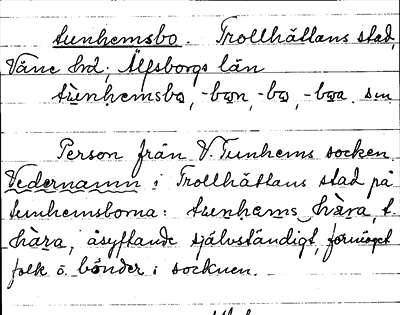 tunhemsbo. Trollhättans stad,
Väne hd; Älfsborgs län
tùnhemsbo, -bon, -bo, -boa. sm
Person från V. Tunhems socken.
Vedernamn i Trollhättans stad på
tunhemsborna: tunhems hära, t.
hära, åsyftande självständigt, förmöget
folk o. bönder i socknen.